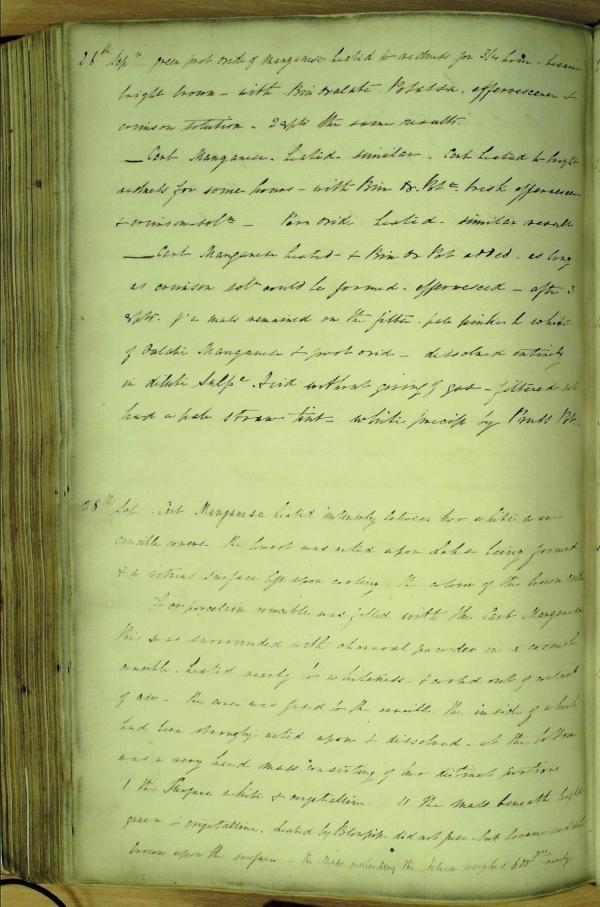 26th Sepr - green prot oxide of Manganese heated to redness for 3/4 hour - became
bright brown - with Bin oxalate Potassa, effervescence &
crimson solution - 2 expts the same results.
— Carb Manganese heated - similar - Carb heated to bright
redness for some hours - with Bin Ox. Pote. brisk effervescence
& crimson soln - Per oxide heated - similar result
— Carb Manganese heated - & Bin Ox Pot added - as long
as crimson soln could be formed - effervesced - after 3
expts. a mass remained on the filter pale pinkish white
of Oxalate Manganese & prot oxide - dissolved entirely
in dilute Sulpc Acid without giving off gas - filtered
had a pale straw tint - white precip by Pruss Pot.
28th Sep. Carb Manganese heated intensely between two white ware
crucible covers. the lowest was acted upon being formed
& a vitreous surface left upon cooling. the colour of the brown
porcelain crucible was filled with the Carb Manganese
this was surrounded with charcoal powder in a
crucible. heated nearly to whiteness - & cooled out of contact
of air - the cover was fused to the crucible. the inside of which
had been strongly acted upon & dissolved - at the bottom
was a very hard mass consisting of two distinct portions
1. the Surface white & crystalline 11 The mass beneath bright
green & crystalline. heated by Blowpipe did not fuse - but became
brown upon the surface - the Mass including the Silica weighed 600 nearly